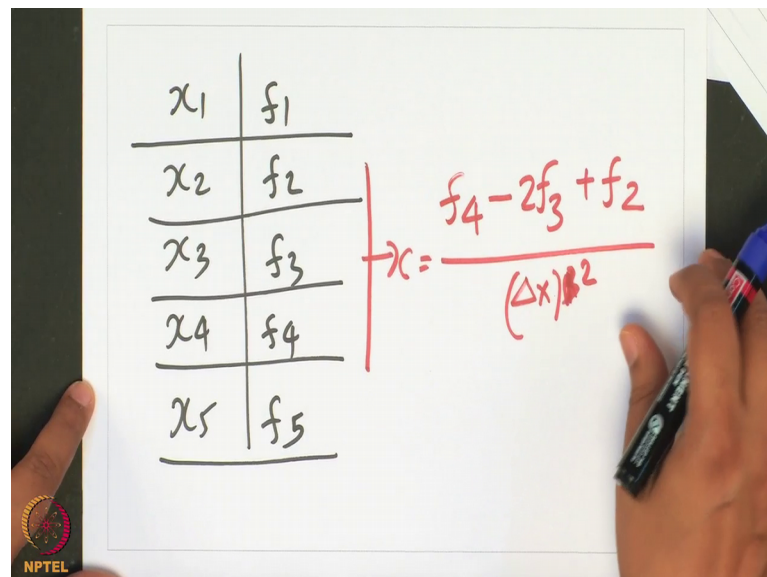 x1 f1
x2 f2
x3 f3
x4 f4
x5 f5
x = (f4 - 2f3 + f2) / (Δx)2
NPTEL